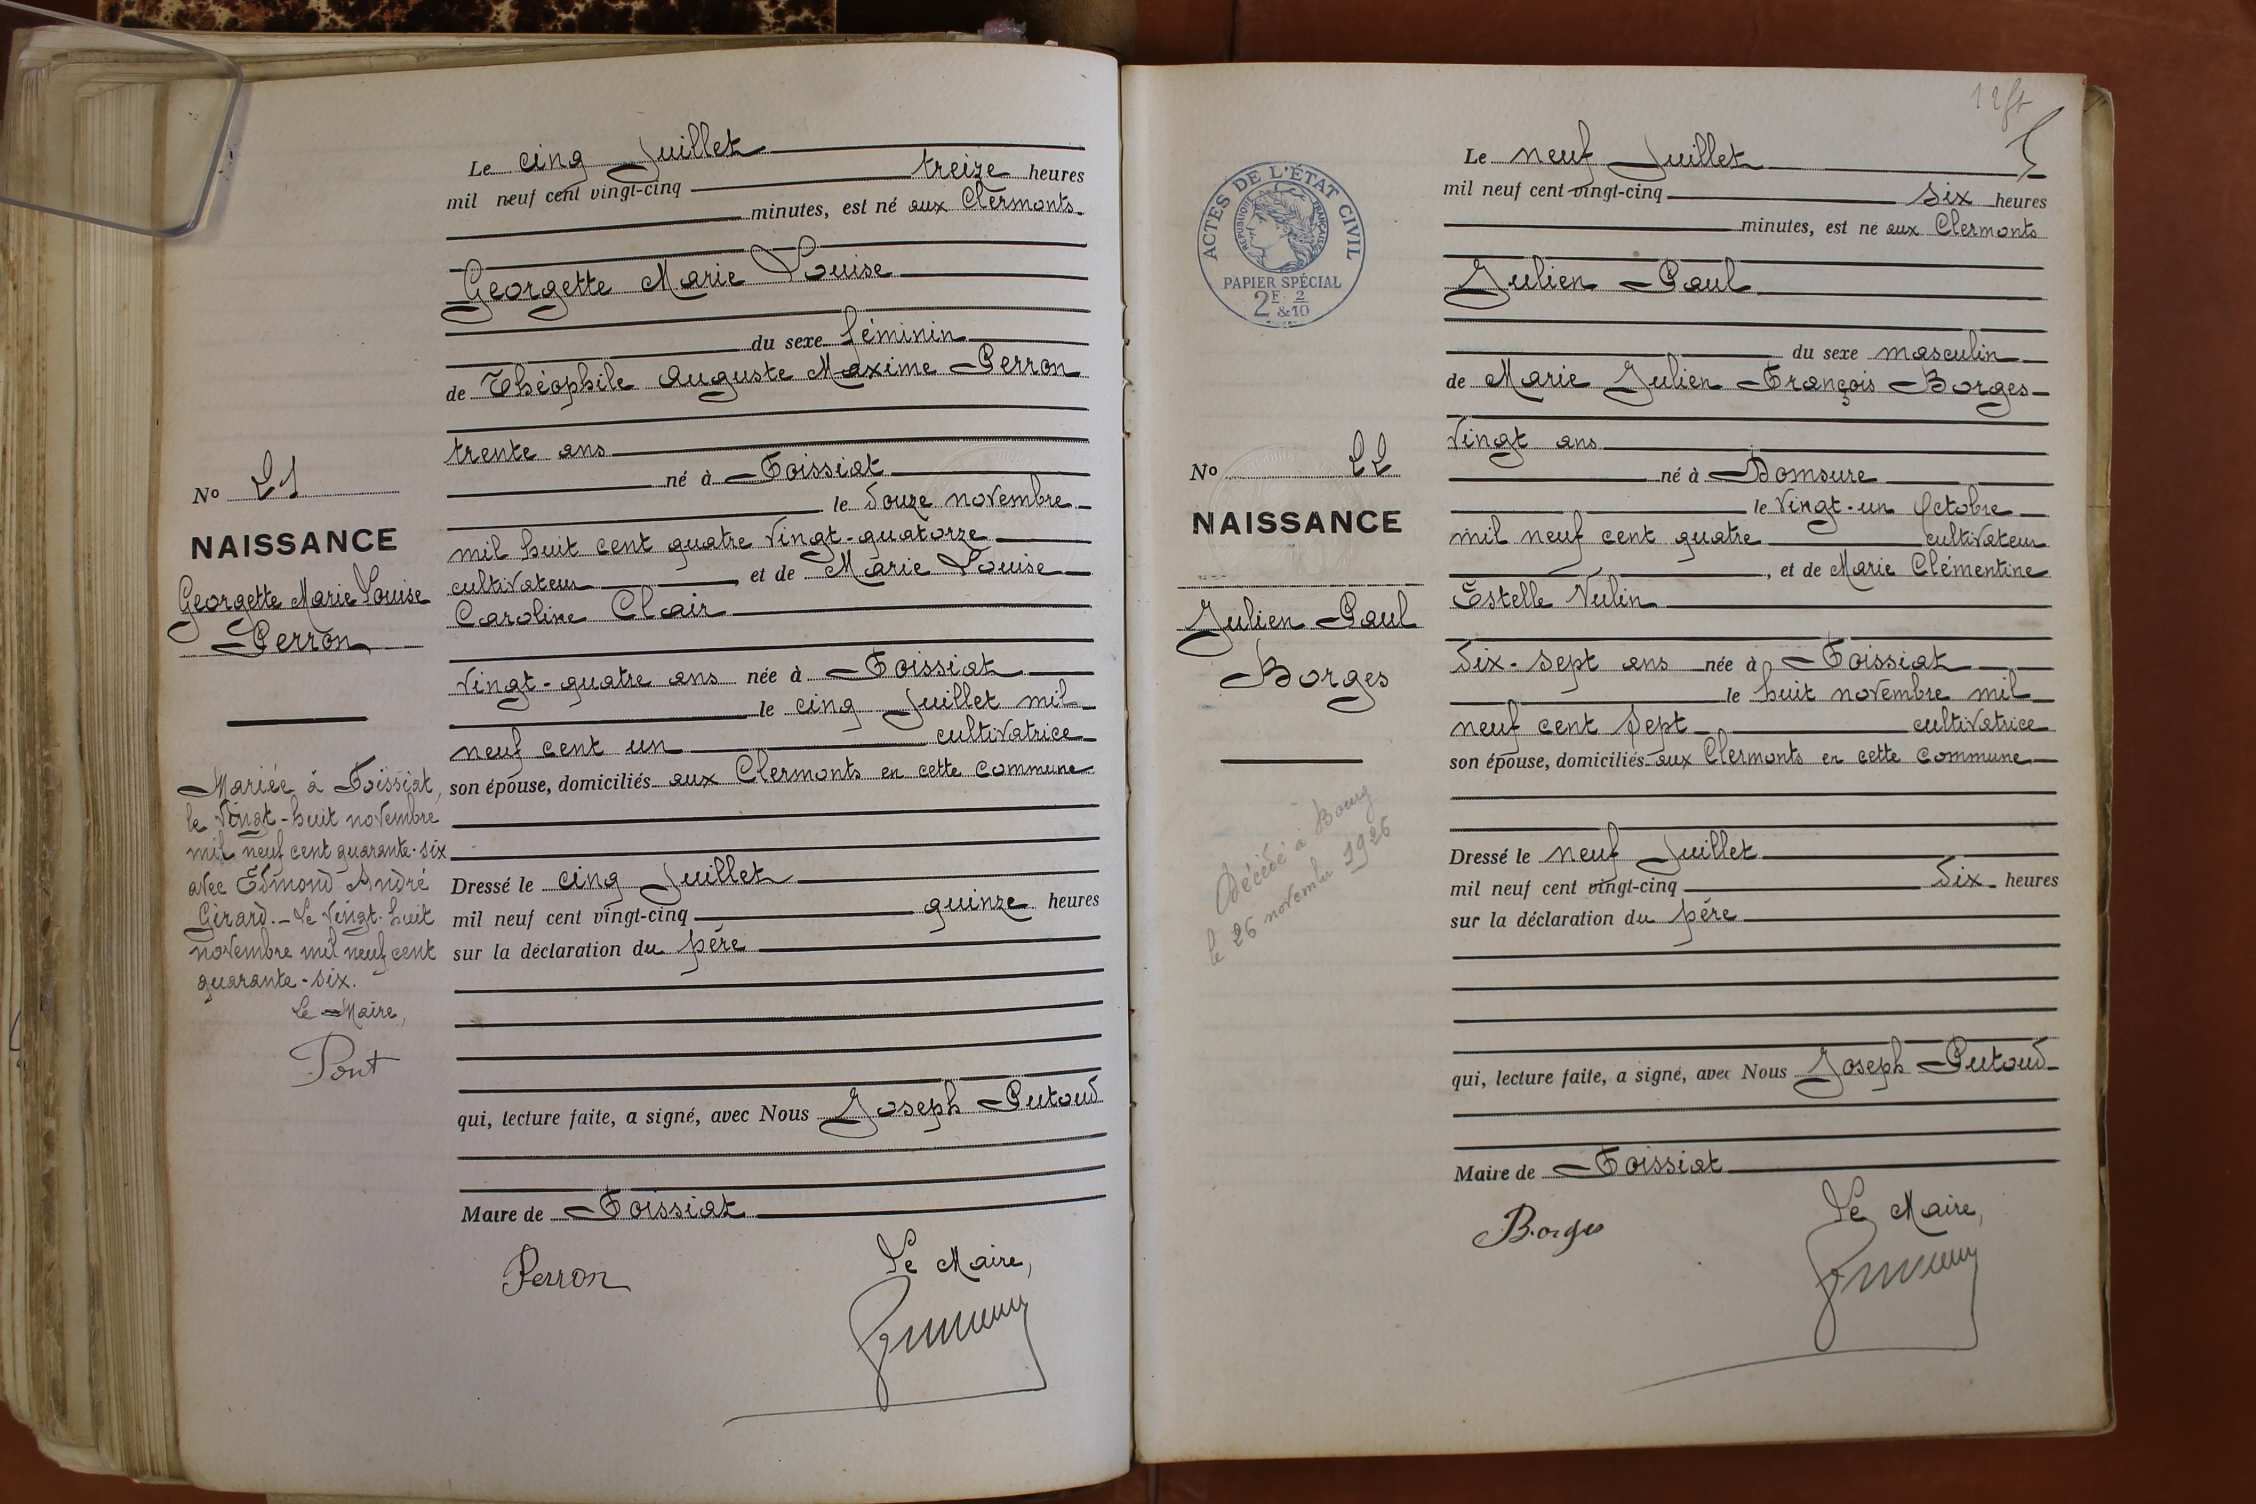 Le cinq Juillet
mil neuf cent vingt-cinq treize heures
minutes, est né aux Clermonts
Georgette Marie Louise
du sexe féminin
de Théophile Auguste Maxime Perron
trente ans
né à Foissiat
le douze novembre
mil huit cent quatre vingt-quatorze
cultivateur, et de Marie Louise
Caroline Clair
vingt-quatre ans née à Foissiat
le cinq Juillet mil
neuf cent un cultivatrice
son épouse, domiciliés aux Clermonts en cette commune
Dressé le cinq Juillet
mil neuf cent vingt-cinq quinze heures
sur la déclaration du père
qui, lecture faite, a signé, avec Nous Joseph Putoud
Maire de Foissiat
Perron
Le Maire,
No 21
NAISSANCE
Georgette Marie Louise
Perron
Mariée à Foissiat,
le vingt-huit novembre
mil neuf cent quarante-six
avec Edmond André
Girard.- Le vingt-huit
novembre mil neuf cent
quarante-six.
Le Maire,
Pont
ACTES DE L'ÉTAT CIVIL
RÉPUBLIQUE FRANÇAISE
PAPIER SPÉCIAL
2F 2
&10
No 22
NAISSANCE
Julien Paul
Borges
Décédé à Bourg
le 26 novembre 1926
Le neuf Juillet
mil neuf cent vingt-cinq six heures
minutes, est né aux Clermonts
Julien Paul
du sexe masculin
de Marie Julien François Borges
vingt ans
né à Domsure
le vingt-un Octobre
mil neuf cent quatre cultivateur
, et de Marie Clémentine
Estelle Vulin
dix-sept ans née à Foissiat
le huit novembre mil
neuf cent sept cultivatrice
son épouse, domiciliés aux Clermonts en cette commune
Dressé le neuf Juillet
mil neuf cent vingt-cinq dix heures
sur la déclaration du père
qui, lecture faite, a signé, avec Nous Joseph Putoud
Maire de Foissiat
Borges
Le Maire,